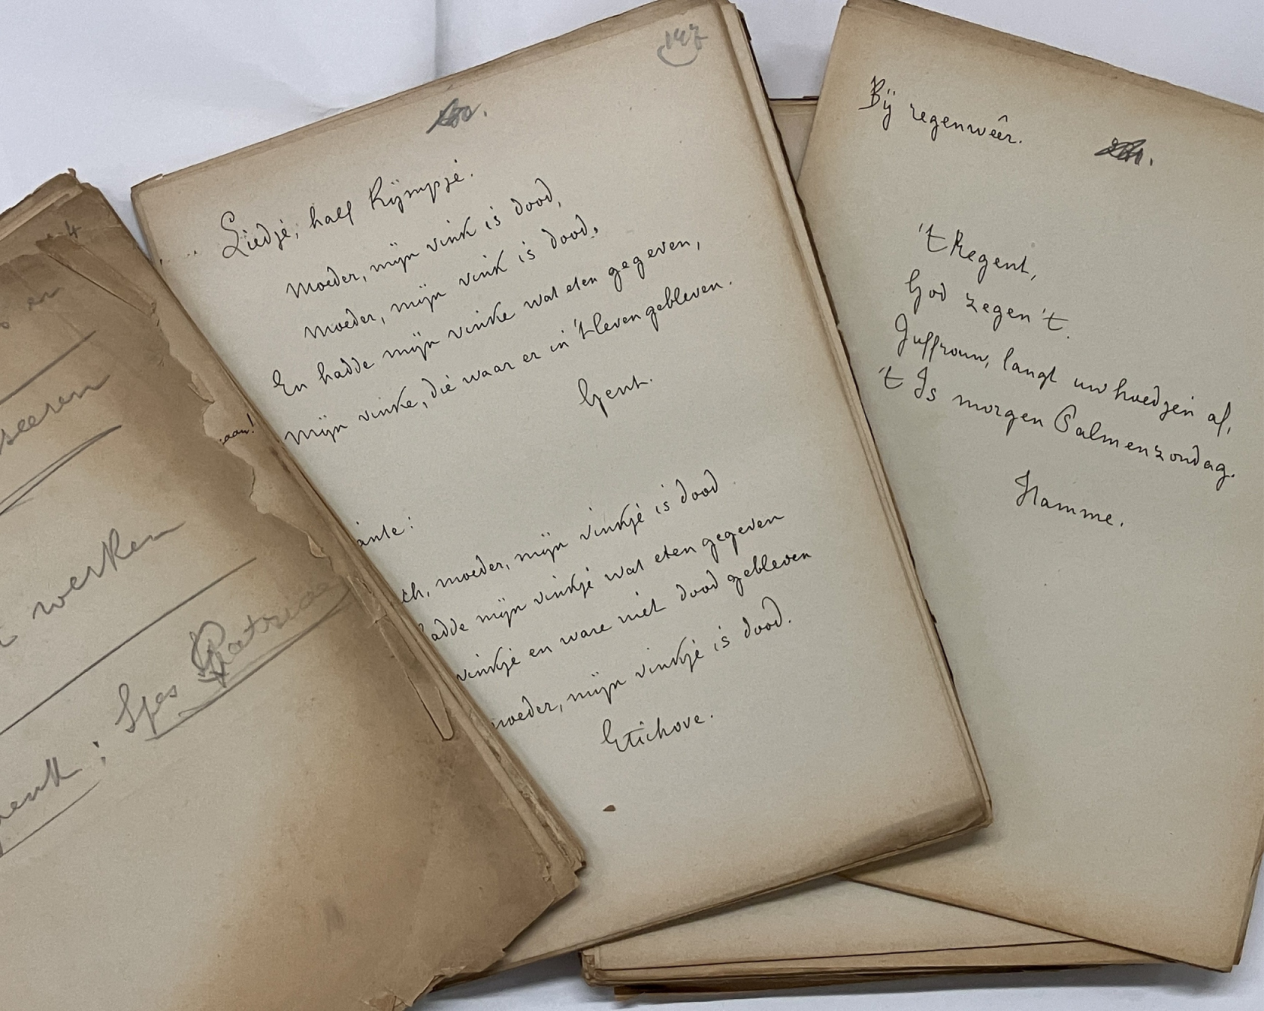 seeren
werken
: Spes Patriae
147
Liedje, half Rijmpje.
Moeder, mijn vink is dood,
Moeder, mijn vink is dood,
En hadde mijn vinke wat eten gegeven,
Mijn vinke, die waar er in 't leven gebleven.
Gent.
ante:
ch, moeder, mijn vinkje is dood.
adde mijn vinkje wat eten gegeven
vinkje en ware niet dood gebleven
moeder, mijn vinkje is dood.
Etichove.
Bij regenwêer.
't Regent,
God zegen 't.
Juffrouw, langt uw hoedjen af,
't Is morgen Palmenzondag.
Hamme.